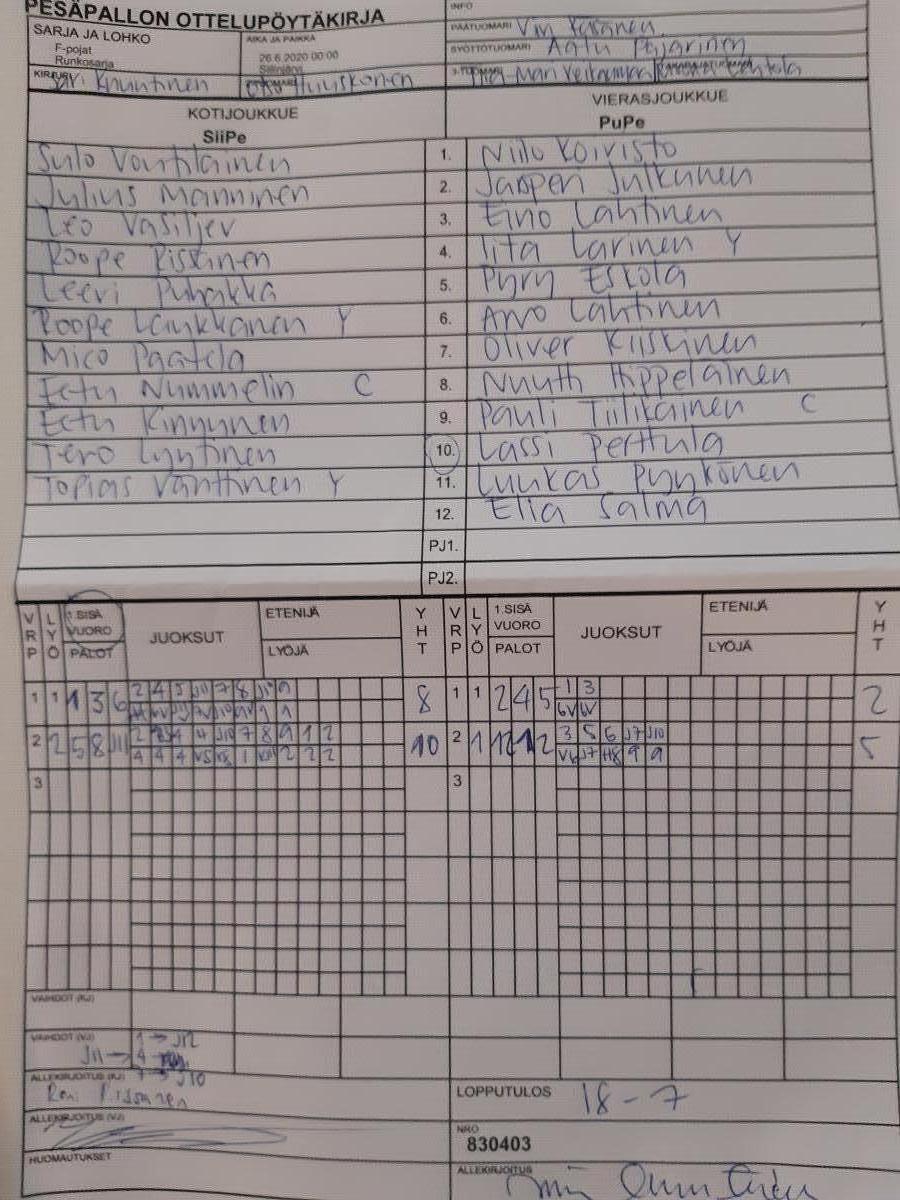 PESÄPALLON OTTELUPÖYTÄKIRJA
INFO
SARJA JA LOHKO
F-pojat
Runkosarja
AIKA JA PAIKKA
26.6.2020 00:00
Siilinjärvi
PÄÄTUOMARI
SYÖTTÖTUOMARI Aatu Pajarinen
KIRJURI Jari Knuutinen
Huuskonen
3-TUOMARI
KOTIJOUKKUE
SiiPe
VIERASJOUKKUE
PuPe
Sulo Vantilainen 1. Niilo Koivisto
Julius Manninen 2. Jasperi Julkunen
Leo Vasiljev 3. Eino Lahtinen
Roope Rissanen 4. Iita Larinen Y
Leevi Puhakka 5. Pyry Eskola
Roope Laukkanen Y 6. Arvo Lahtinen
Mico Paatela 7. Oliver Kiiskinen
Eetu Nummelin C 8. Nuutti Hippeläinen
Eetu Kinnunen 9. Pauli Tiilikainen C
Tero Lyytinen 10. Lassi Perttula
Topias Vänttinen Y 11. Luukas Pyykönen
12. Elia Salma
PJ1.
PJ2.
VRP LYÖ 1.SISÄ VUORO PALOT JUOKSUT ETENIJÄ LYÖJÄ YHT VRP LYÖ 1.SISÄ VUORO PALOT JUOKSUT ETENIJÄ LYÖJÄ YHT
1 1 1 3 6 2 4 5 J11 7 8 9 8 1 1 2 4 5 1 3 2
6V 6V
2 2 5 8 J11 2 4 J10 7 8 9 1 2 10 2 1 12 1 2 3 5 6 J7 J10 5
4 4 4 1 2 2 2 V6 J7 H8 9 9
3 3
VAIHDOT (KJ)
VAIHDOT (VJ)
1 → J12
J11 → 4
7 → J10
ALLEKIRJOITUS (KJ)
Roni Rissanen
ALLEKIRJOITUS (VJ)
HUOMAUTUKSET
LOPPUTULOS 18-7
NRO
830403
ALLEKIRJOITUS